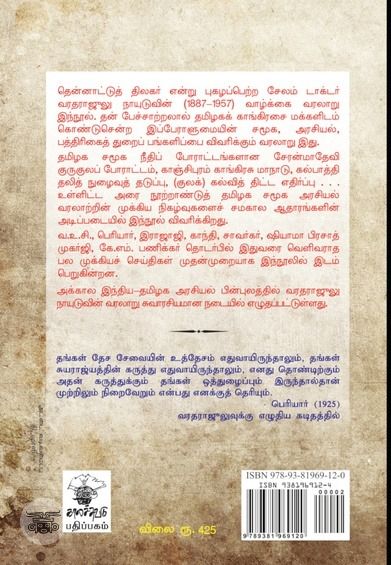 தென்னாட்டுத் திலகர் என்று புகழப்பெற்ற சேலம் டாக்டர்
வரதராஜுலு நாயுடுவின் (1887-1957) வாழ்க்கை வரலாறு
இந்நூல். தன் பேச்சாற்றலால் தமிழகக் காங்கிரசை மக்களிடம்
கொண்டுசென்ற இப்பேராளுமையின் சமூக, அரசியல்,
பத்திரிகைத் துறைப் பங்களிப்பை விவரிக்கும் வரலாறு இது.
தமிழக சமூக நீதிப் போராட்டங்களான சேரன்மாதேவி
குருகுலப் போராட்டம், காஞ்சிபுரம் காங்கிரசு மாநாடு, கல்பாத்தி
தலித் நுழைவுத் தடுப்பு, (குலக்) கல்வித் திட்ட எதிர்ப்பு . . .
உள்ளிட்ட அரை நூற்றாண்டுத் தமிழக சமூக அரசியல்
வரலாற்றின் முக்கிய நிகழ்வுகளைச் சமகால ஆதாரங்களின்
அடிப்படையில் இந்நூல் விவரிக்கிறது.
வ.உ.சி., பெரியார், இராஜாஜி, காந்தி, சாவர்கர், ஷியாமா பிரசாத்
முகர்ஜி, கே.எம். பணிக்கர் தொடர்பில் இதுவரை வெளிவராத
பல முக்கியச் செய்திகள் முதன்முறையாக இந்நூலில் இடம்
பெறுகின்றன.
அக்கால இந்திய-தமிழக அரசியல் பின்புலத்தில் வரதராஜுலு
நாயுடுவின் வரலாறு சுவாரசியமான நடையில் எழுதப்பட்டுள்ளது.
தங்கள் தேச சேவையின் உத்தேசம் எதுவாயிருந்தாலும், தங்கள்
சுயராஜ்யத்தின் கருத்து எதுவாயிருந்தாலும், எனது தொண்டிற்கும்
அதன் கருத்துக்கும் தங்கள் ஒத்துழைப்பும் இருந்தால்தான்
முற்றிலும் நிறைவேறும் என்பது எனக்குத் தெரியும்.
பெரியார் (1925)
வரதராஜுலுவுக்கு எழுதிய கடிதத்தில்
காலச்சுவடு
பதிப்பகம்
விலை ரூ. 425
ISBN 978-93-81969-12-0
ISBN 938196912-4
00002
9 789381 969120